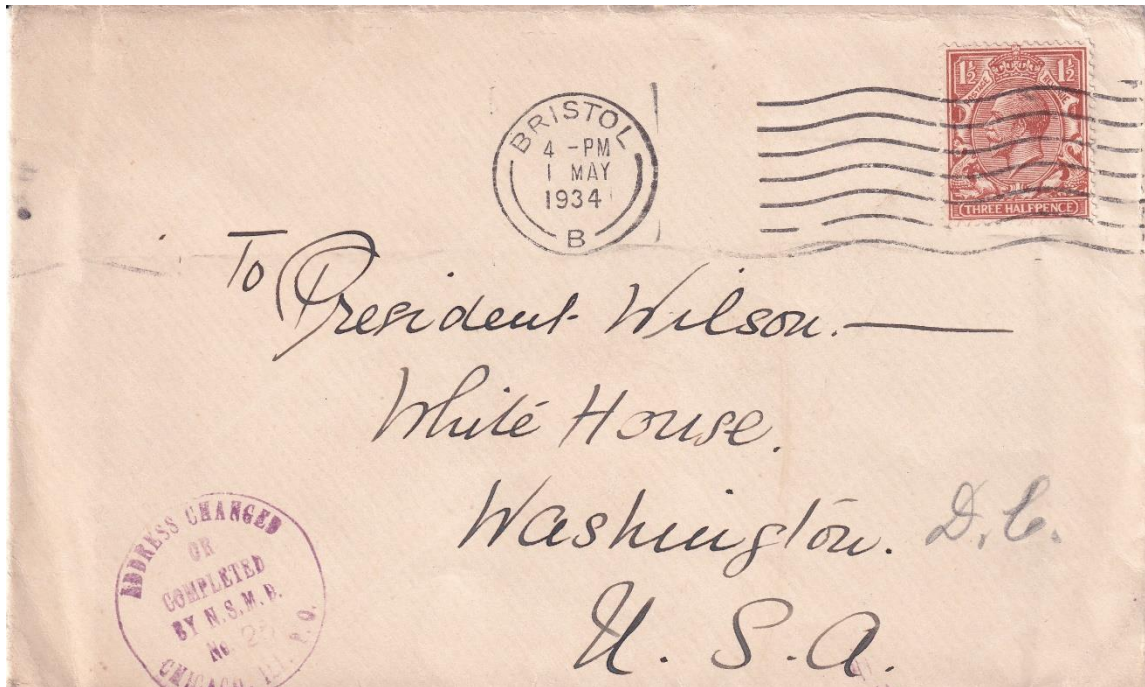 BRISTOL
4 - PM
1 MAY
1934
B
1½ 1½
POSTAGE REVENUE
THREE HALFPENCE
To President Wilson.
White House.
Washington. D.C.
U. S. A.
ADDRESS CHANGED
OR
COMPLETED
BY N.S.M.D.
No.
CHICAGO, ILL. P.O.